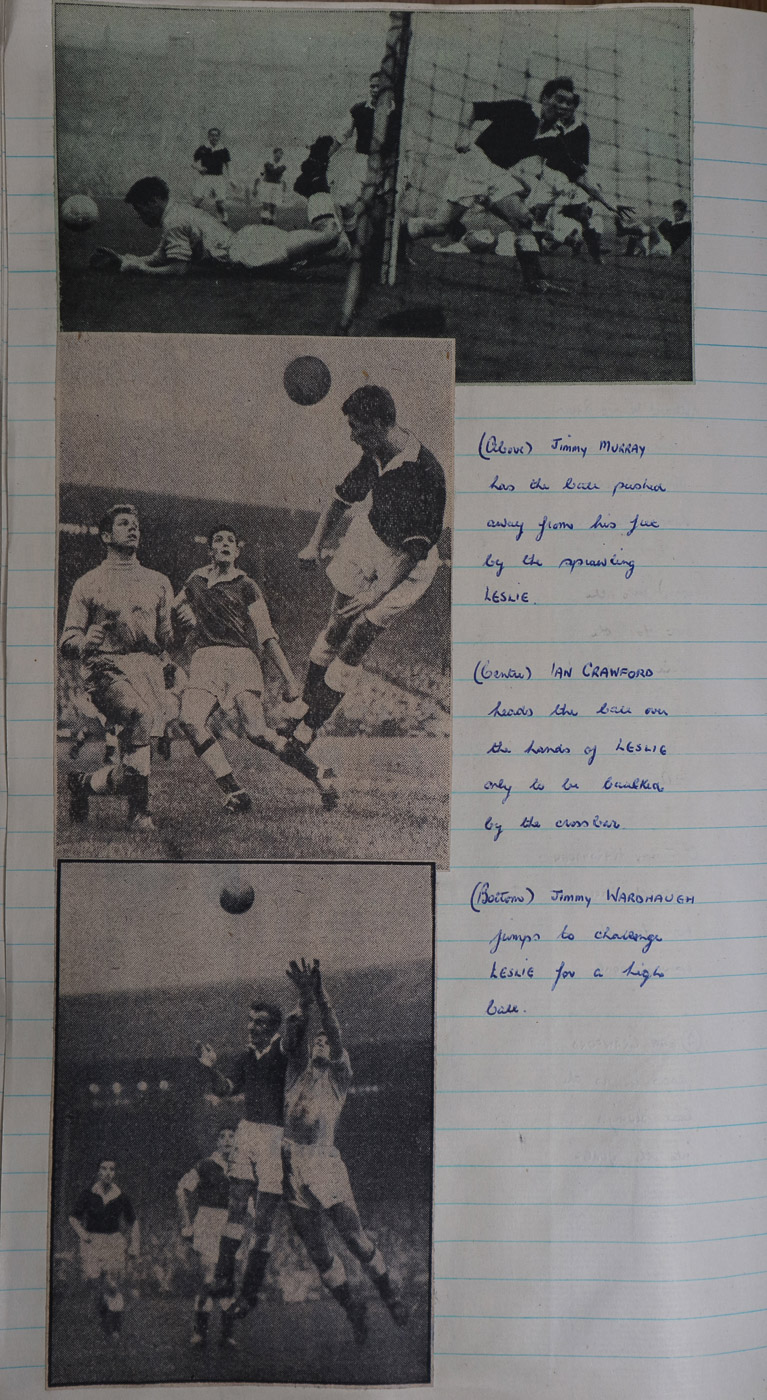 (Above) Jimmy MURRAY
has the ball pushed
away from his feet
by the sprawling
LESLIE.
(Centre) IAN CRAWFORD
heads the ball over
the hands of LESLIE
only to be baulked
by the crossbar
(Bottom) Jimmy WARDHAUGH
jumps to challenge
LESLIE for a high
ball.